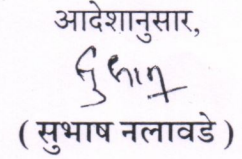 आदेशानुसार,
सुभाष
( सुभाष नलावडे )